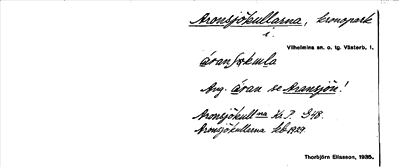 Aronsjökullarna, kronopark
i
Vilhelmina sn. o. tg. Västerb. l.
Ang. åran se Aransjön!
Aronsjökullna Kr. P. S48.
Aronsjökullarna kb 1929.
Thorbjörn Eliasson, 1935.